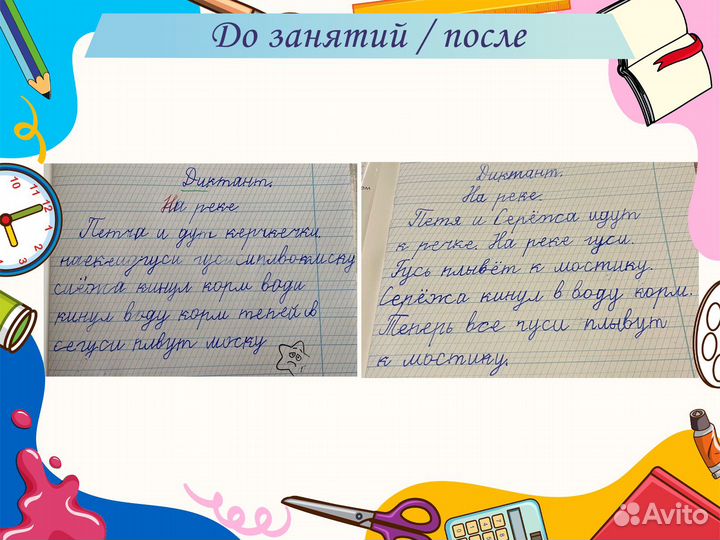 До занятий / после
Диктант.
На реке
Петча и дут керчкечки.
наекеизгуси гусимплвокмиску
слёжса кинул корм води
кинул воду корм тепей в
сегуси плвут моску
Диктант.
На реке.
Петя и Серёжса идут
к речке. На реке гуси.
Гусь плывёт к мостику.
Серёжса кинул в воду корм.
Теперь все гуси плывут
к мостику.
10
11
12
1
2
3
4
5
Avito